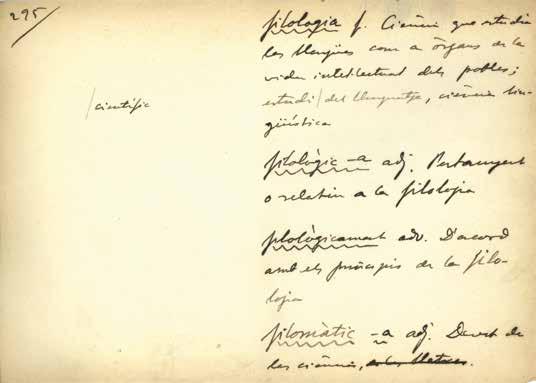 295
/científic
filologia f. Ciència que estudia
les llengües com a òrgans de la
vida intel·lectual dels pobles;
estudi/del llenguatge, ciència lin-
güística
filològic -a adj. Pertanyent
o relatiu a la filologia
filològicament adv. D'acord
amb els principis de la filo-
logia
filomàtic -a adj. Devot de
les ciències, o les lletres.